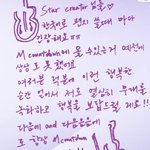 Star creator 님들
한국에로 편지 쓸 때 마다
긴장해요 ㅠㅠ
M countdown에 올 수 있는거 예전에
상상도 못했어요
여러분 덕분에 이런 행복한
순간 있어서 저도 열심히 무대를
하고 행복을 보답드릴게요!!
다음에 and 다음 다음에
도 항상 Mcountdown